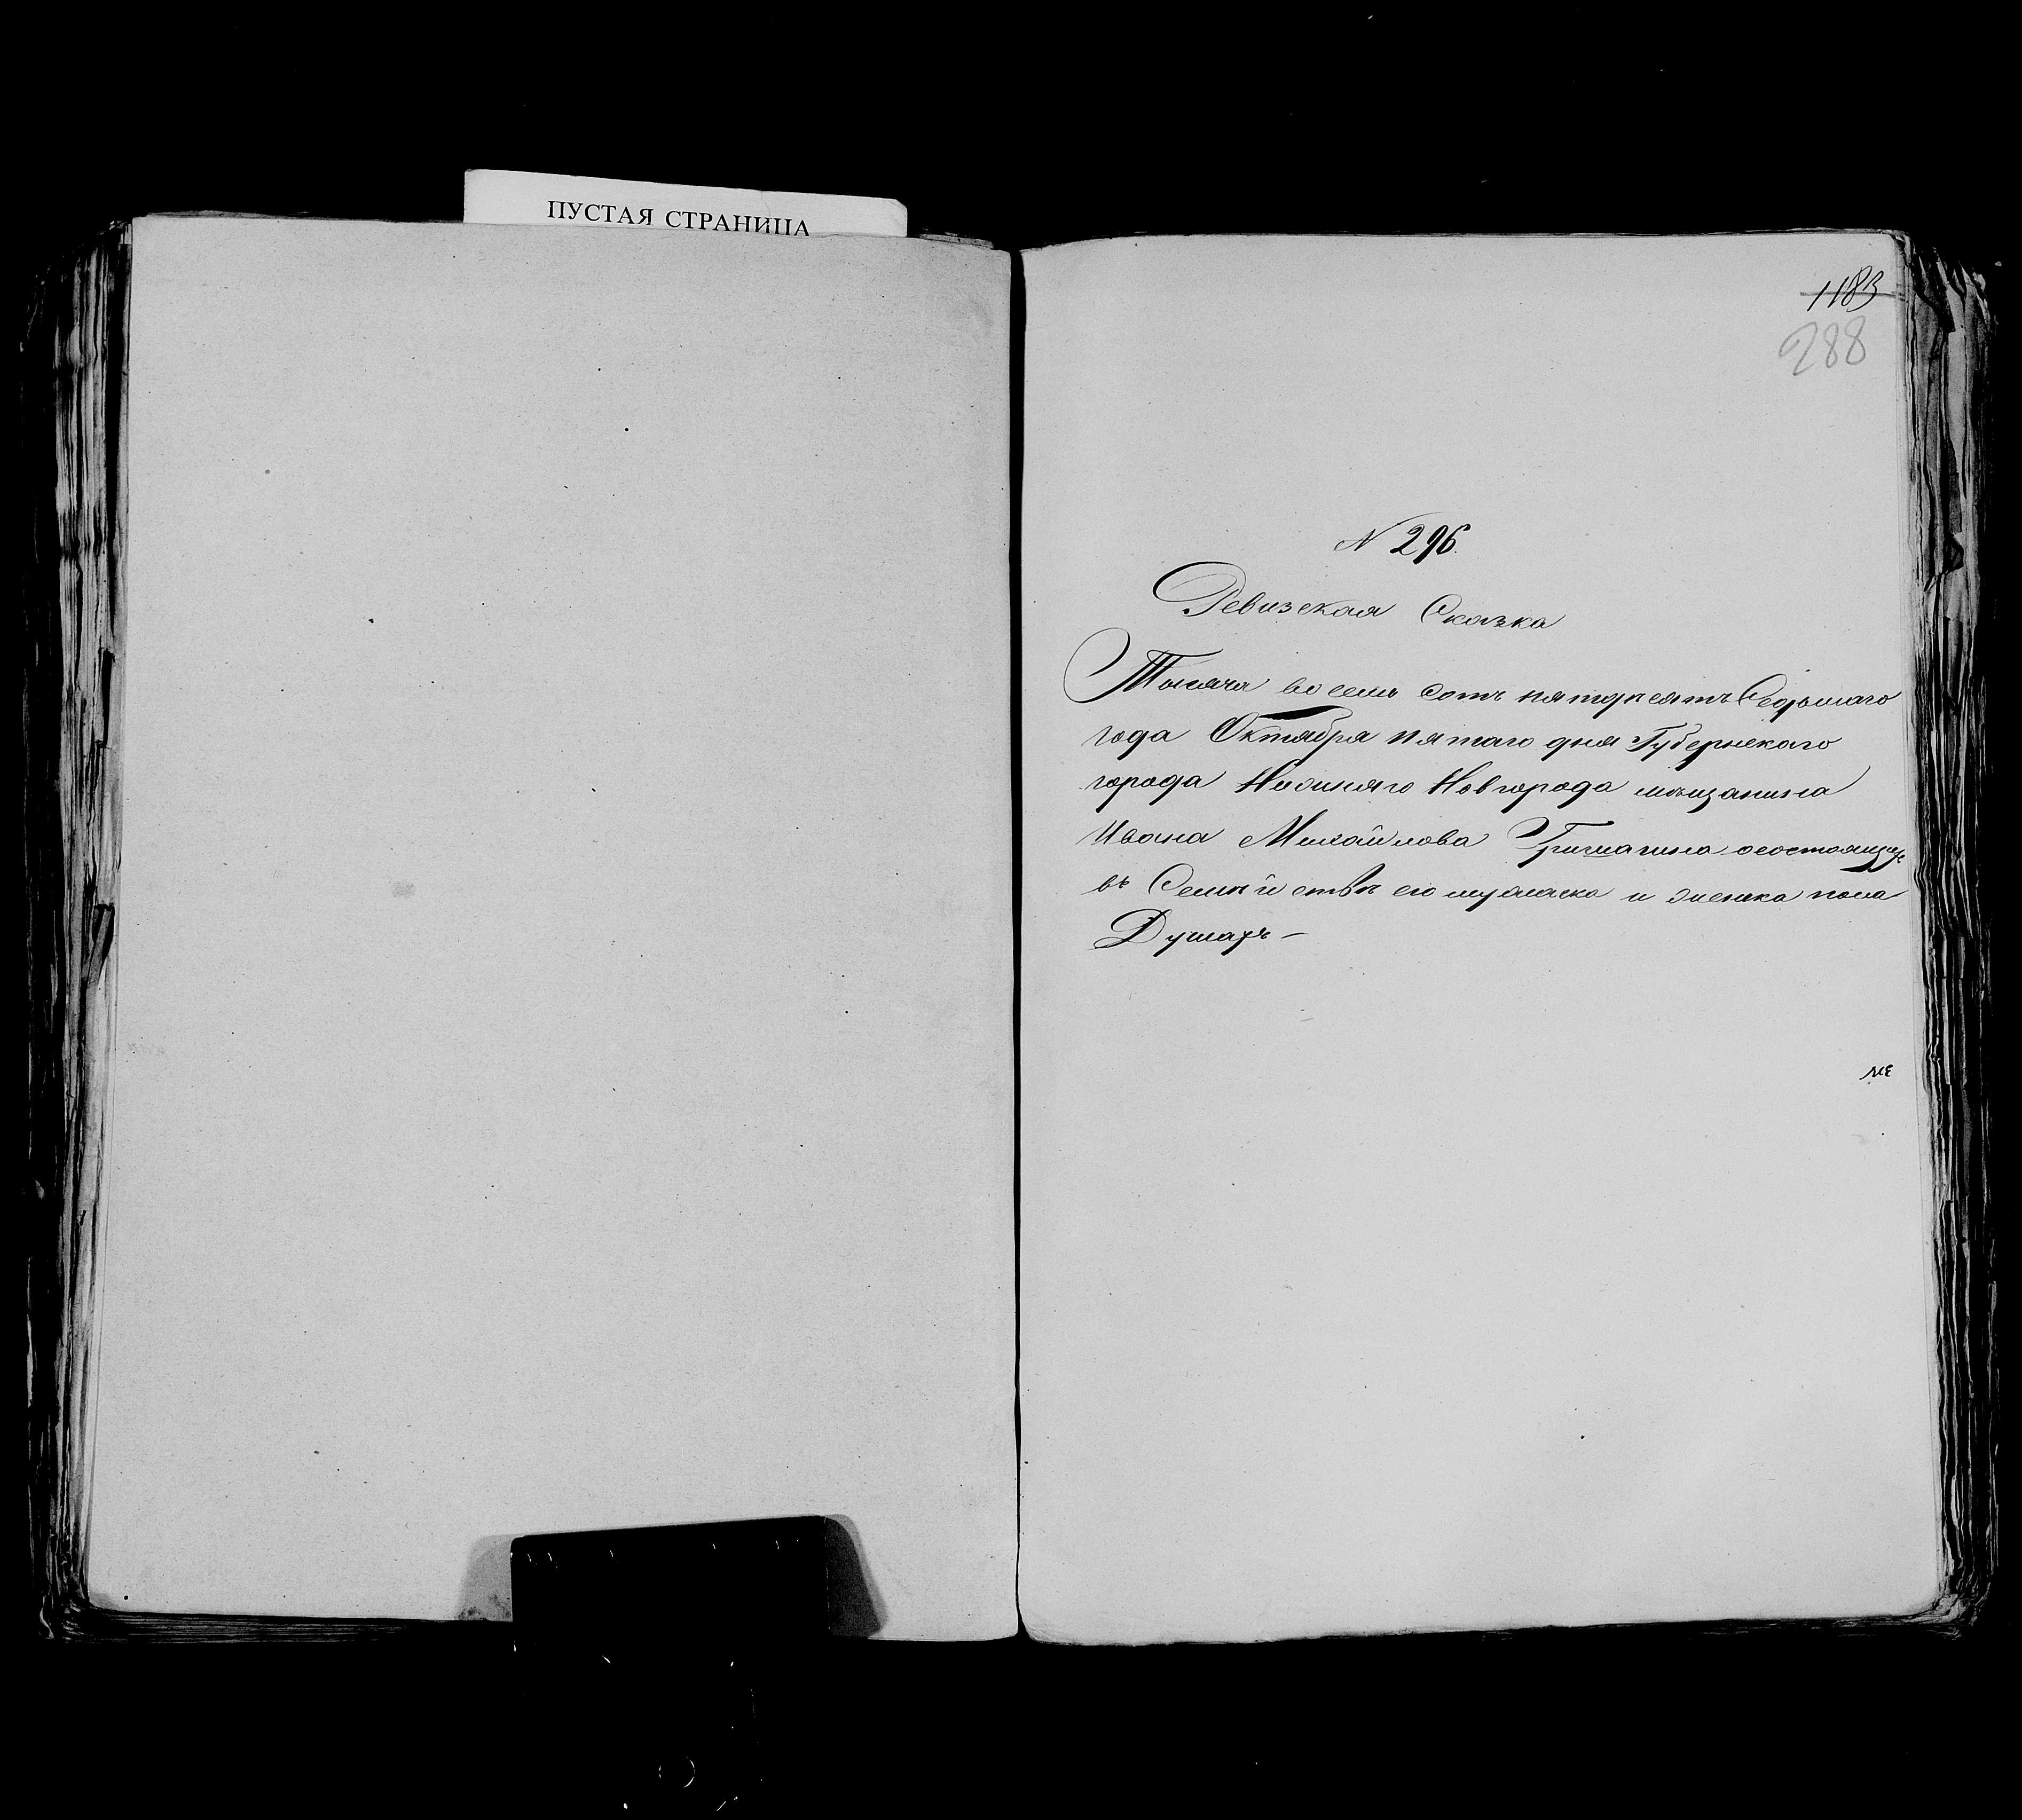 ПУСТАЯ СТРАНИЦА
1183
288
N 296.
Ревизская Сказка
Тысяча восемь сотъ пятдесятъ Седьмаго
года Октября пятаго дня Губернскаго
города Нижняго Новгорода мѣщанина
Ивана Михайлова Гришагина о состоящихъ
въ Семѣйствѣ его мужеска и женска пола
Душахъ —